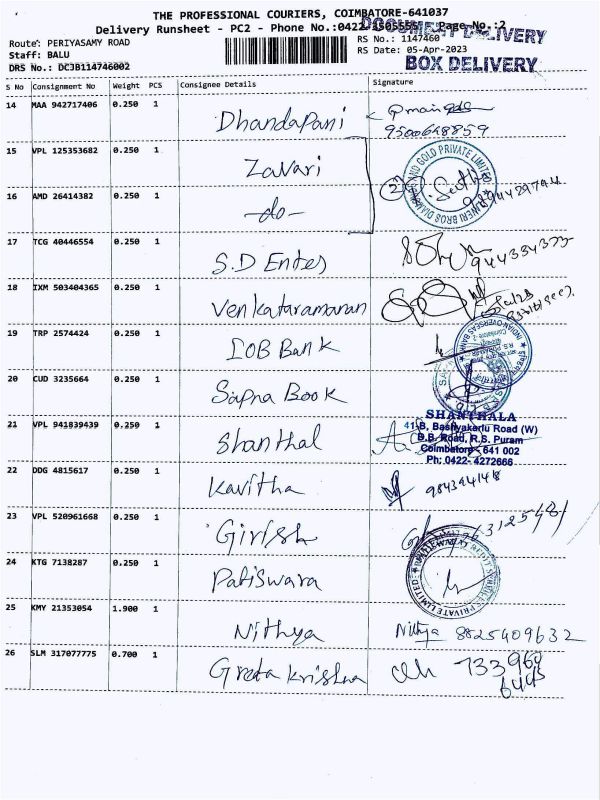 THE PROFESSIONAL COURIERS, COIMBATORE-641037
Delivery Runsheet - PC2 - Phone No.:0422-3505555 Page No.:2
DOCUMENT DELIVERY
Route: PERIYASAMY ROAD
RS No.: 1147460
Staff: BALU
RS Date: 05-Apr-2023
DRS No.: DC3B114746002
BOX DELIVERY
S No Consignment No Weight PCS Consignee Details Signature
14 MAA 942717406 0.250 1 Dhandapani
9500648859
15 VPL 125353682 0.250 1 Zavari
16 AMD 26414382 0.250 1 -do-
17 TCG 40446554 0.250 1 S.D Entes
18 IXM 503404365 0.250 1 Venkataramanan
19 TRP 2574424 0.250 1 IOB Bank
INDIAN OVERSEAS BANK
20 CUD 3235664 0.250 1 Sapna Book
21 VPL 941839439 0.250 1 Shanthal
SHANTHALA
41-B, Bashyakarlu Road (W)
D.B. Road, R.S. Puram
Coimbatore - 641 002
Ph: 0422- 4272666
22 DDG 4815617 0.250 1 Kavitha
23 VPL 520961668 0.250 1 Girish
24 KTG 7138287 0.250 1 Patiswara
25 KMY 21353054 1.900 1 Nithya Nithya 8825409632
26 SLM 317077775 0.700 1 Greata Krishna 733960